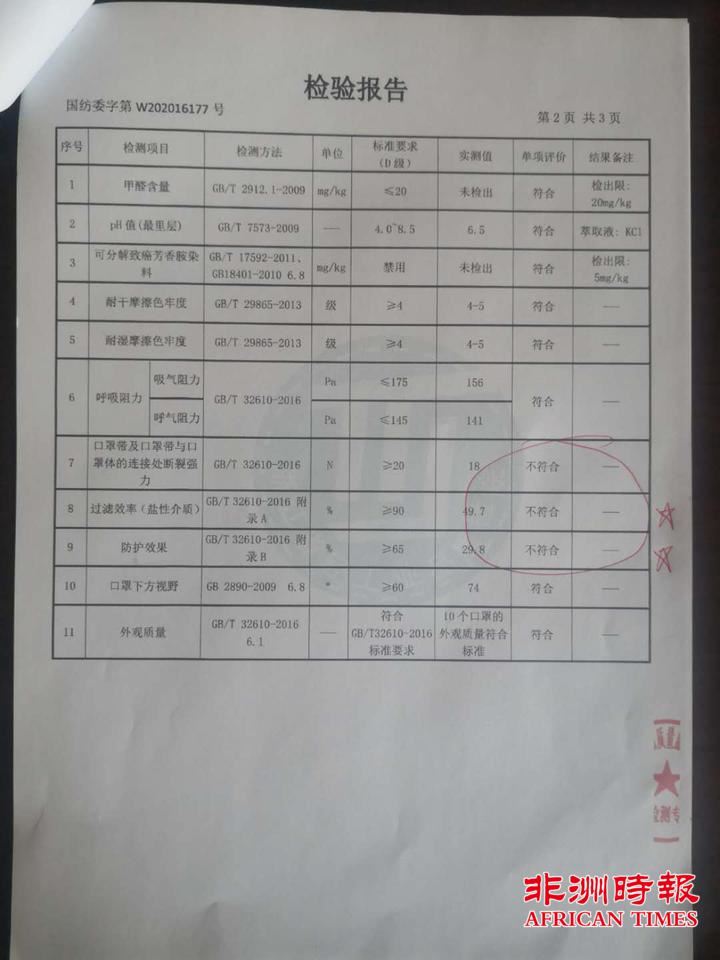 检验报告
国纺委字第 W202016177 号
第 2 页 共 3 页
序号 检测项目 检测方法 单位 标准要求（D 级） 实测值 单项评价 结果备注
1 甲醛含量 GB/T 2912.1-2009 mg/kg ≤20 未检出 符合 检出限: 20mg/kg
2 pH 值(最里层) GB/T 7573-2009 —— 4.0~8.5 6.5 符合 萃取液: KCl
3 可分解致癌芳香胺染料 GB/T 17592-2011、GB18401-2010 6.8 mg/kg 禁用 未检出 符合 检出限: 5mg/kg
4 耐干摩擦色牢度 GB/T 29865-2013 级 ≥4 4-5 符合 ——
5 耐湿摩擦色牢度 GB/T 29865-2013 级 ≥4 4-5 符合 ——
6 呼吸阻力 吸气阻力 GB/T 32610-2016 Pa ≤175 156 符合 ——
呼气阻力 Pa ≤145 141
7 口罩带及口罩带与口罩体的连接处断裂强力 GB/T 32610-2016 N ≥20 18 不符合 ——
8 过滤效率（盐性介质） GB/T 32610-2016 附录 A % ≥90 49.7 不符合 ——
9 防护效果 GB/T 32610-2016 附录 B % ≥65 29.8 不符合 ——
10 口罩下方视野 GB 2890-2009 6.8 ° ≥60 74 符合 ——
11 外观质量 GB/T 32610-2016 6.1 —— 符合 GB/T32610-2016 标准要求 10 个口罩的外观质量符合标准 符合 ——
非洲時報
AFRICAN TIMES